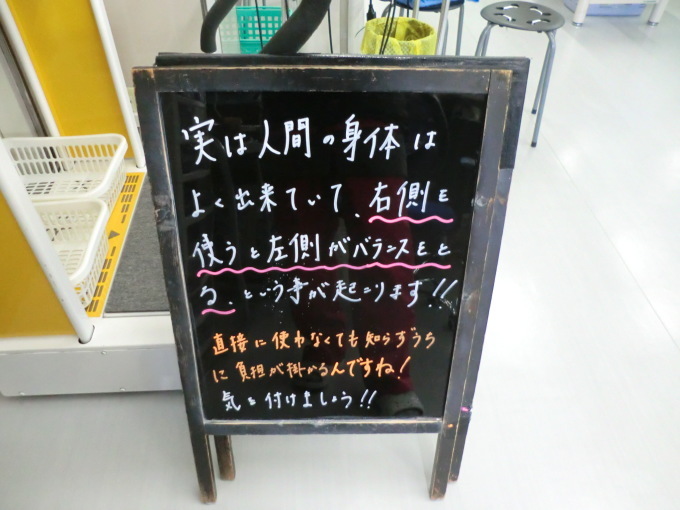 実は人間の身体は
よく出来ていて、右側を
使うと左側がバランスをと
る、という事が起こります!!
直接に使わなくても知らずうち
に負担が掛かるんですね!
気を付けましょう!!